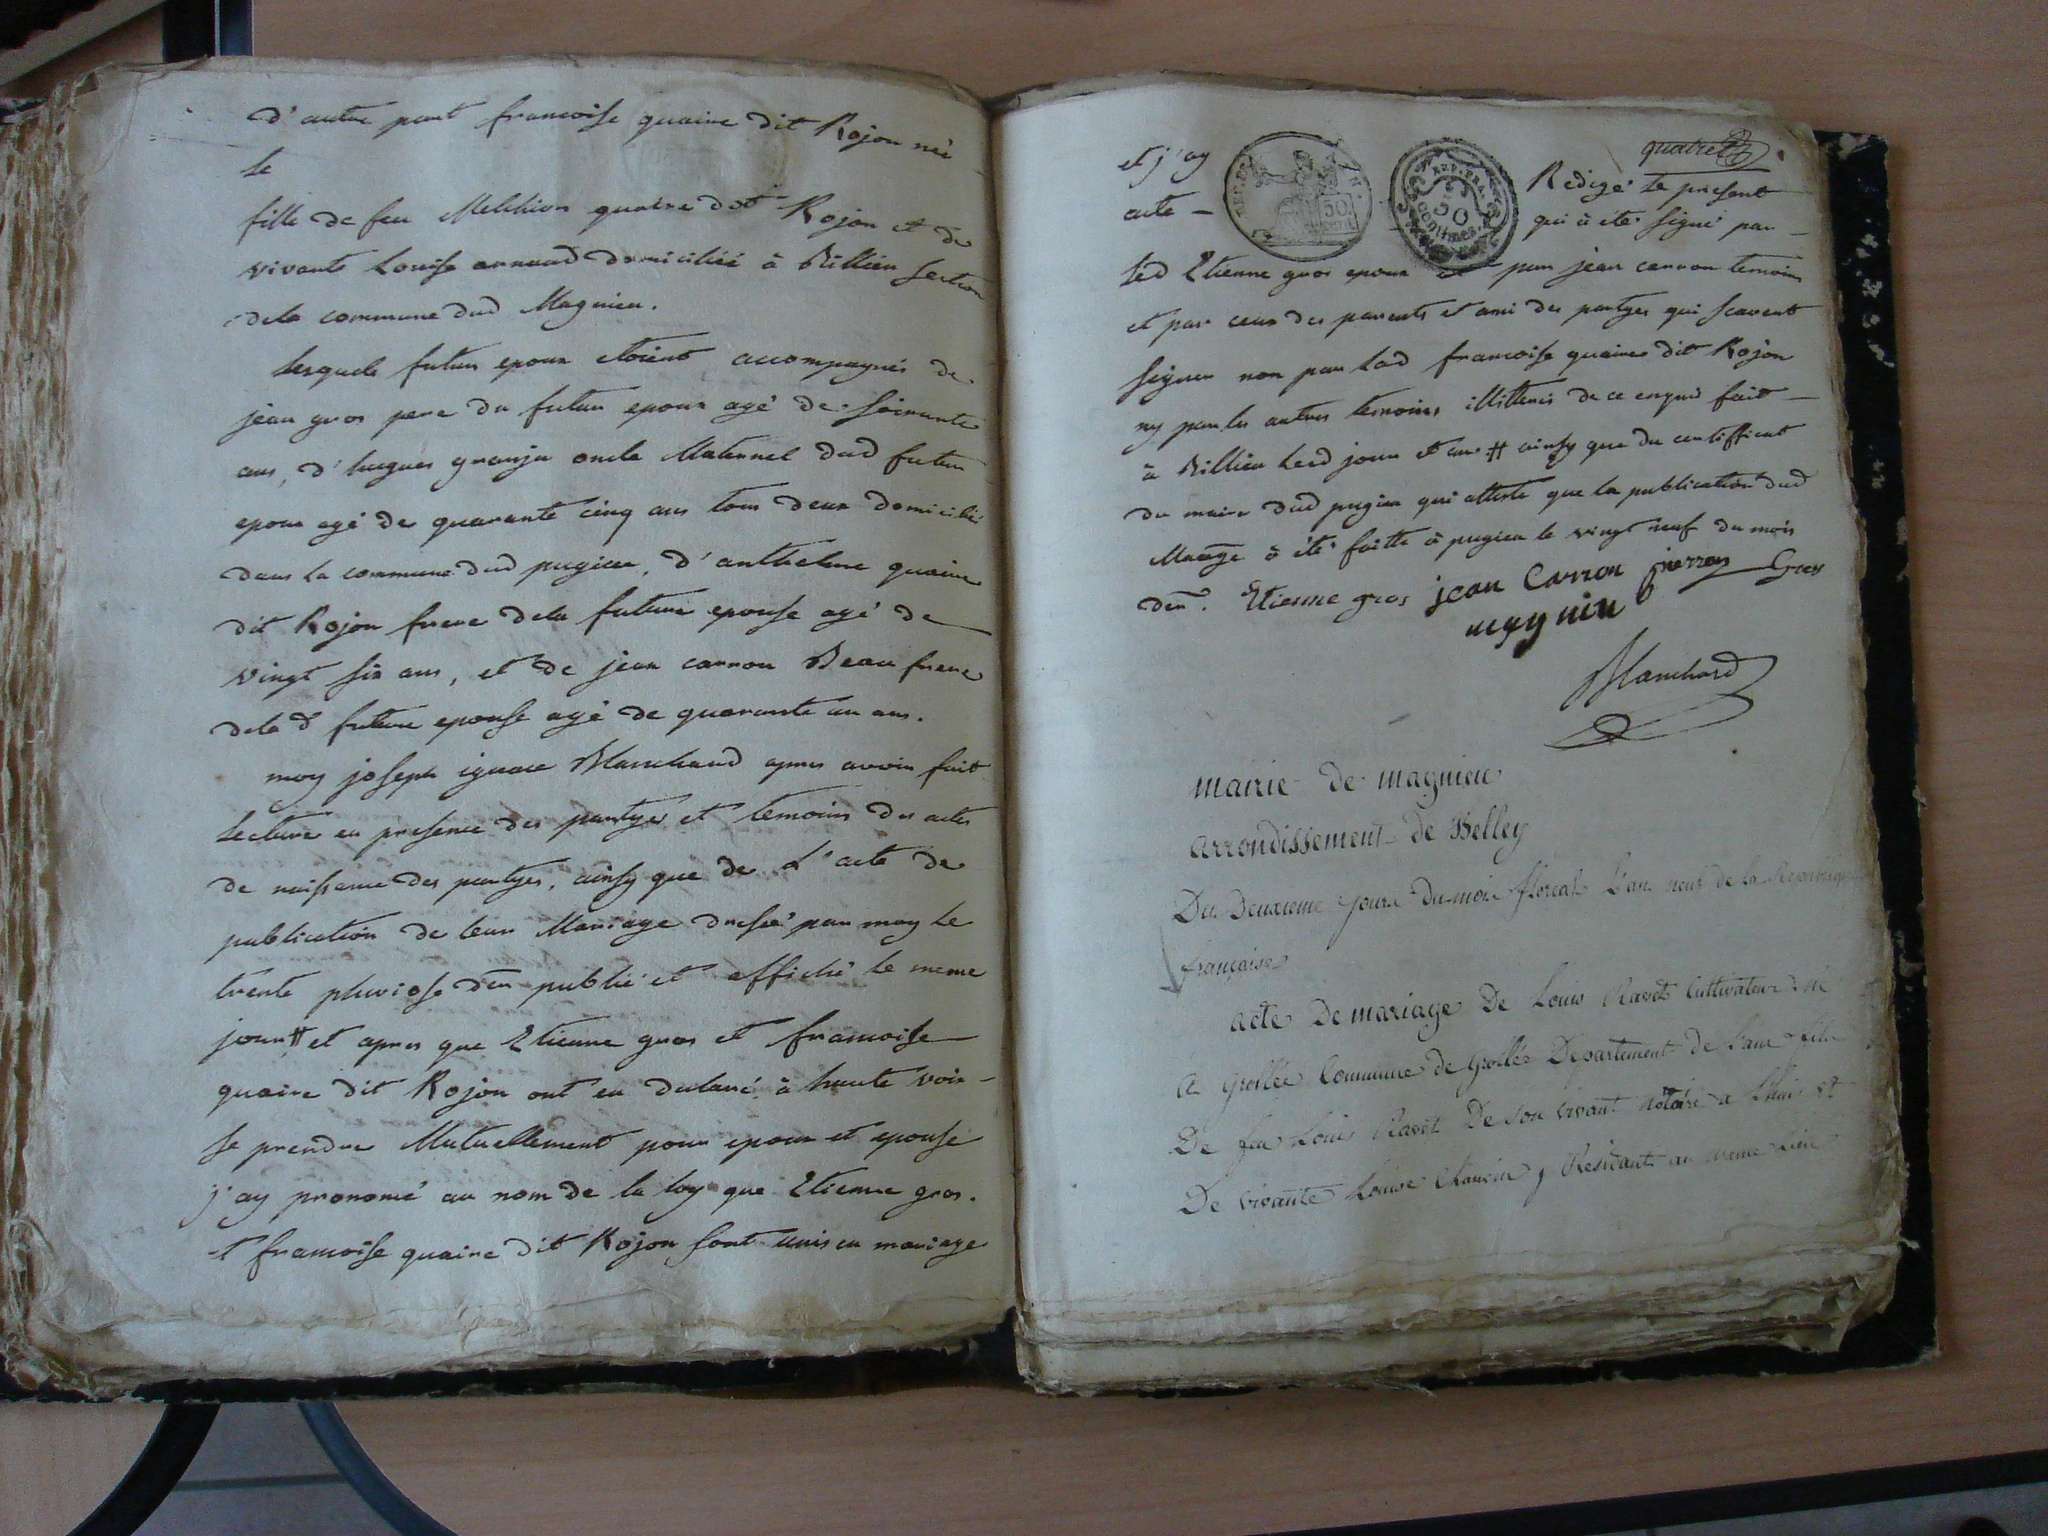 d'autre part francoise quaire dit Rojon neé
le
fille de feu Melchior quaire dit Rojon et de
vivante Louise arnaud domiciliéé à Billieu section
dela commune dud Magnieu.
lesquels futurs epoux etoient accompagnés de
jean gros pere du futur epoux agé de soixante
ans, d'hugues granju oncle Maternel dud futur
epoux agé de quarante cinq ans tous deux domicilié
dans la commune dud pugieu, d'anthelme quaire
dit Rojon frere dela future epouse agé de
vingt six ans, et de jean carron Beau frere
dela d future epouse agé de quarante un ans.
moy joseph ignace Blanchard apres avoir fait
lecture en presence des partyes et temoins des actes
de naissance des partyes, ainsy que de L'acte de
publication de leur Mariage dressé par moy le
trente pluviose den publié et affiché le meme
jour # et apres que Etienne gros et francoise
quaire dit Rojon ont eu declaré à haute voix
se prendre Mutuellement pour epoux et epouse
j'ay prononcé au nom de la loy que Etienne gros.
et francoise quaire dit Rojon sont unis en mariage
quatre
et j'ay Redigé le present
acte - qui à eté signé par
REP. FRA.
50
centimes.
led Etienne gros epoux et par jean carron temoins
et par ceux des parents et ami des partyes qui scavent
signer non par lad francoise quaire dit Rojon
ny par les autres temoins illitterés de ce enquis fait
à Billieu lesd jour et an # ainsy que du certifficat
du maire dud pugieu qui atteste que la publication dud
Mariage à été faitte à pugieu le vingt neuf du mois
den. Etienne gros jean Carron pierron Gros
magnin
Blanchard
mairie de magnieu
arrondissement de Belley
Du Deuxieme jour du mois floreal L'an neuf de la Republique
française
acte De mariage De Louis Ravet Cultivateur né
a grollée Commune de grollée Departement de L'ain fils
De feu Louis Ravet De son vivant notaire a Lhuis et
De vivante Louise Residante au meme Lieu